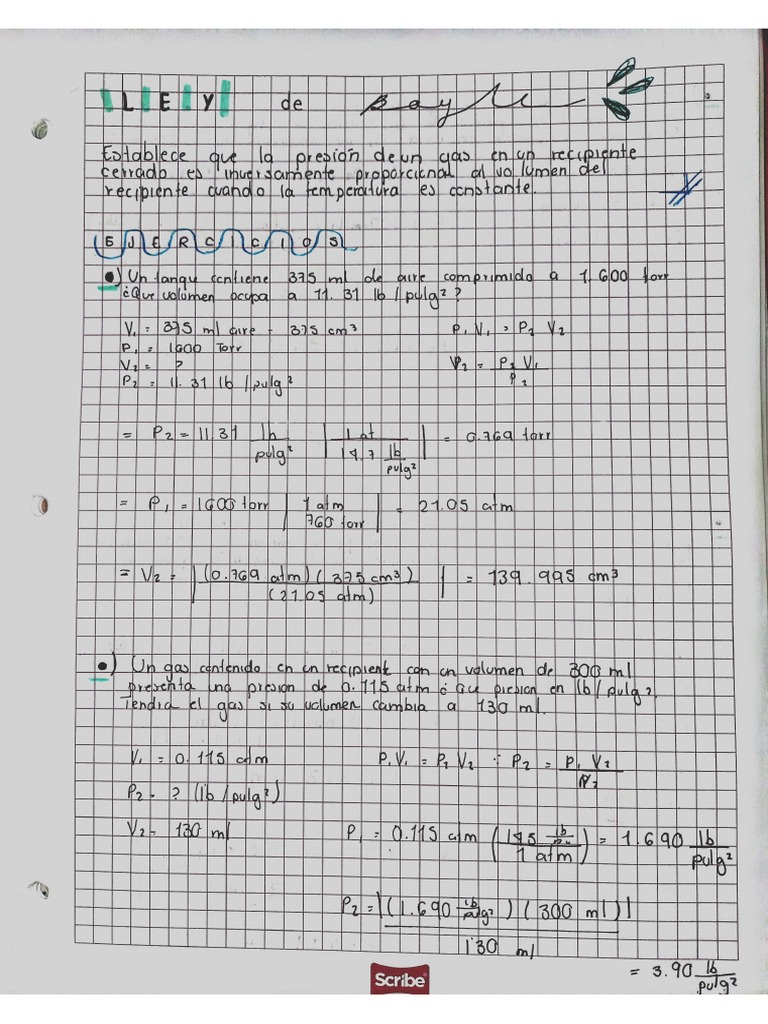 LEY de Boyle
Establece que la presión de un gas en un recipiente
cerrado es inversamente proporcional al volumen del
recipiente cuando la temperatura es constante.
EJERCICIOS
•) Un tanqu contiene 375 ml de aire comprimido a 1.600 torr
¿Que volumen ocupa a 11.31 lb/pulg²?
V₁ = 375 ml aire - 375 cm³ P₁ V₁ = P₂ V₂
P₁ = 1600 Torr
V₂ = ? V₂ = P₁ V₁ / P₂
P₂ = 11.31 lb/pulg²
= P₂ = 11.31 lb/pulg² | 1 at / 14.7 lb/pulg² | = 0.769 torr
= P₁ = 1600 torr | 1 atm / 760 torr | = 21.05 atm
= V₂ = | (0.769 atm) (375 cm³) / (21.05 atm) | = 139.995 cm³
•) Un gas contenido en un recipient con un volumen de 300 ml
presenta una presion de 0.115 atm ¿ que presion en lb/pulg²,
Tendra el gas si su volumen cambia a 130 ml.
V₁ = 0.115 atm P₁ V₁ = P₂ V₂ ∵ P₂ = P₁ V₂ / V₂
P₂ = ? (lb/pulg²)
V₂ = 130 ml P₁ = 0.115 atm ( lb / 1 atm ) = 1.690 lb/pulg²
P₂ = | (1.690 lb/pulg²) (300 ml) | / 130 ml
= 3.90 lb/pulg²
Scribe